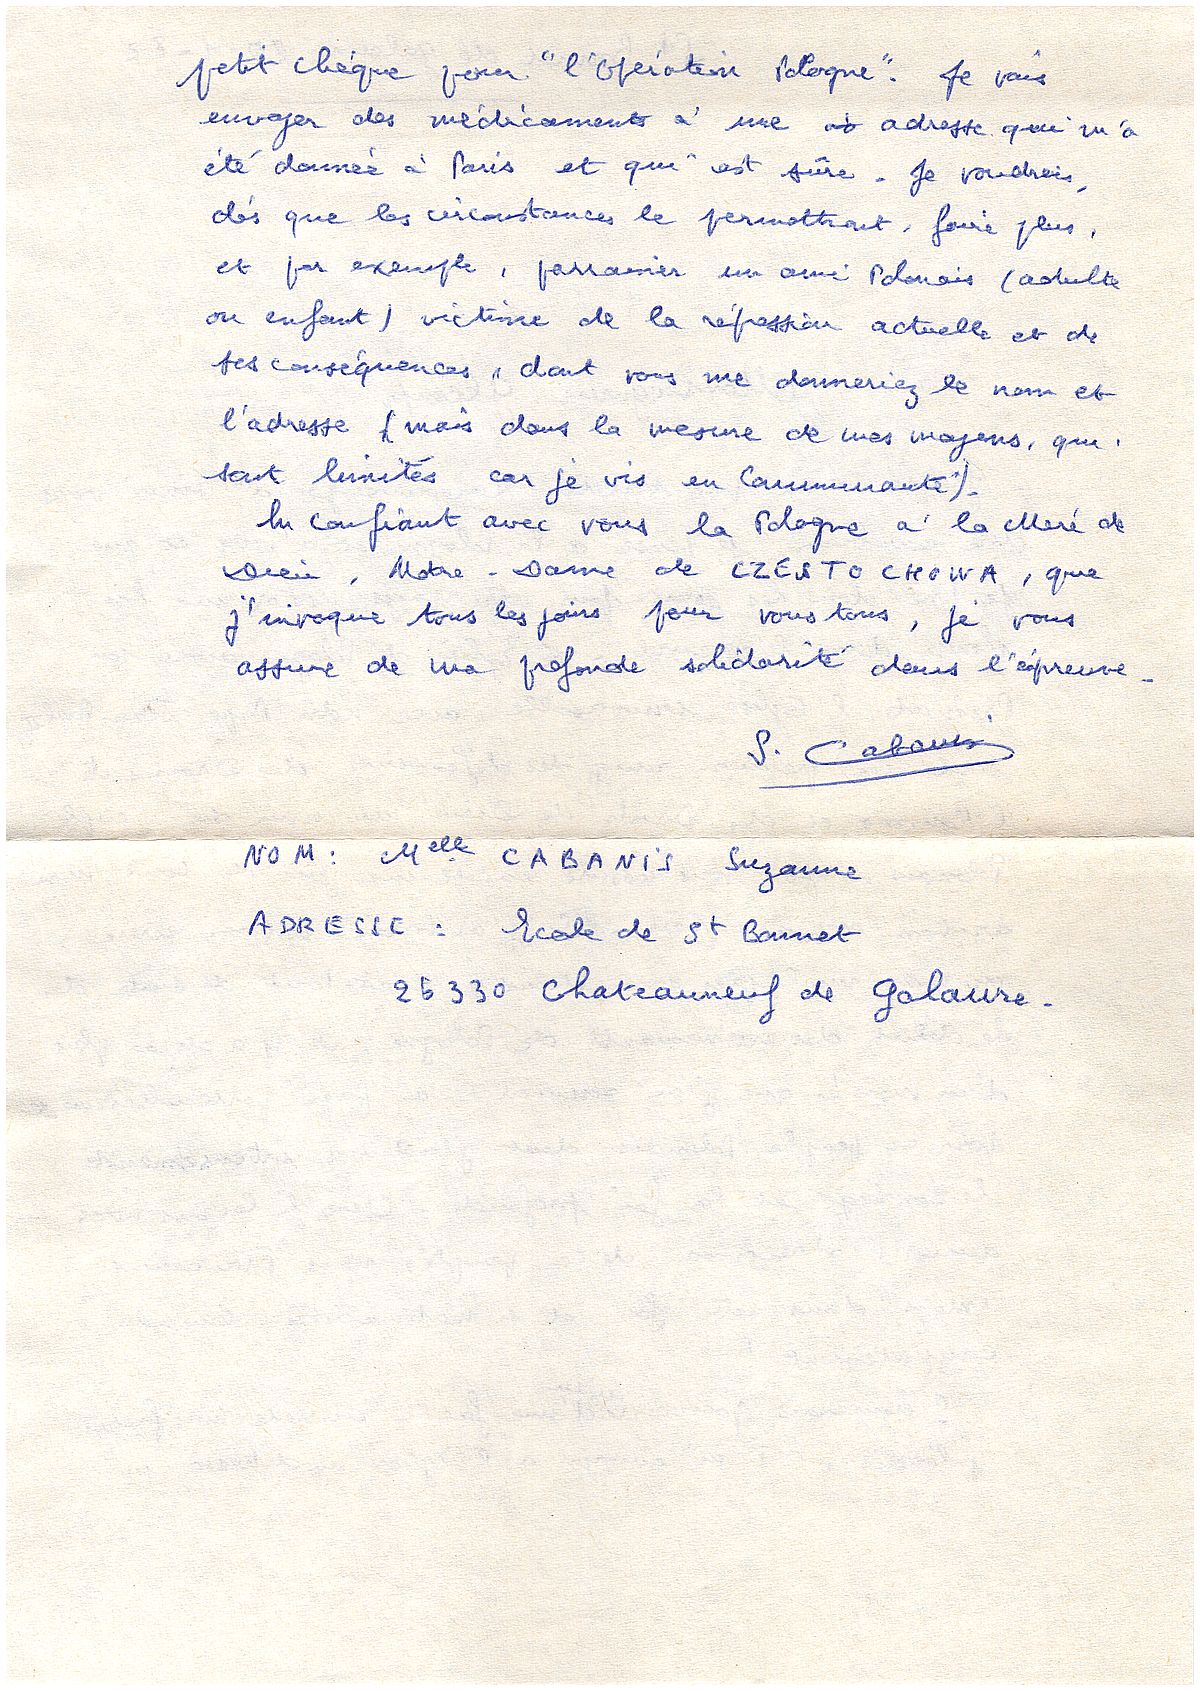 petit chèque pour "l'Opération Pologne". Je vais
envoyer des médicaments à une adresse qui m'a
été donnée à Paris et qui est sûre. Je voudrais,
dès que les circonstances le permettront, faire plus,
et par exemple, parrainer un ami Polonais (adulte
ou enfant) victime de la répression actuelle et de
ses conséquences, dont vous me donneriez le nom et
l'adresse (mais dans la mesure de mes moyens, qui
sont limités car je vis en Communauté).
En confiant avec vous la Pologne à la Mère de
Dieu, Notre-Dame de CZESTOCHOWA, que
j'invoque tous les jours pour vous tous, je vous
assure de ma profonde solidarité dans l'épreuve.
S. Cabanis
NOM : Melle CABANIS Suzanne
ADRESSE : Ecole de St Bonnet
26330 Chateauneuf de Galaure.